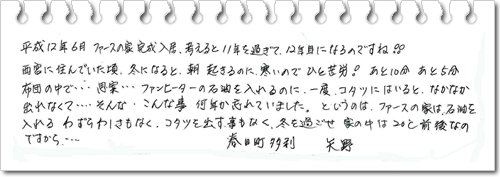 平成12年6月 ファースの家完成入居、考えると11年を過ぎて、12年目になるのですね!!
西宮に住んでいた頃、冬になると、朝 起きるのに、寒いので ひと苦労! あと10分 あと5分
布団の中で… 固案… ファンヒーターの石油を入れるのに、一度、コタツにはいると、なかなか
出れなくて…… そんな・こんな事 何年か忘れていました。というのは、ファースの家は、石油を
入れる わずらわしさもなく、コタツを出す事もなく、冬を過ごせ 家の中は20℃前後なの
ですから、…
春日町多利 矢野